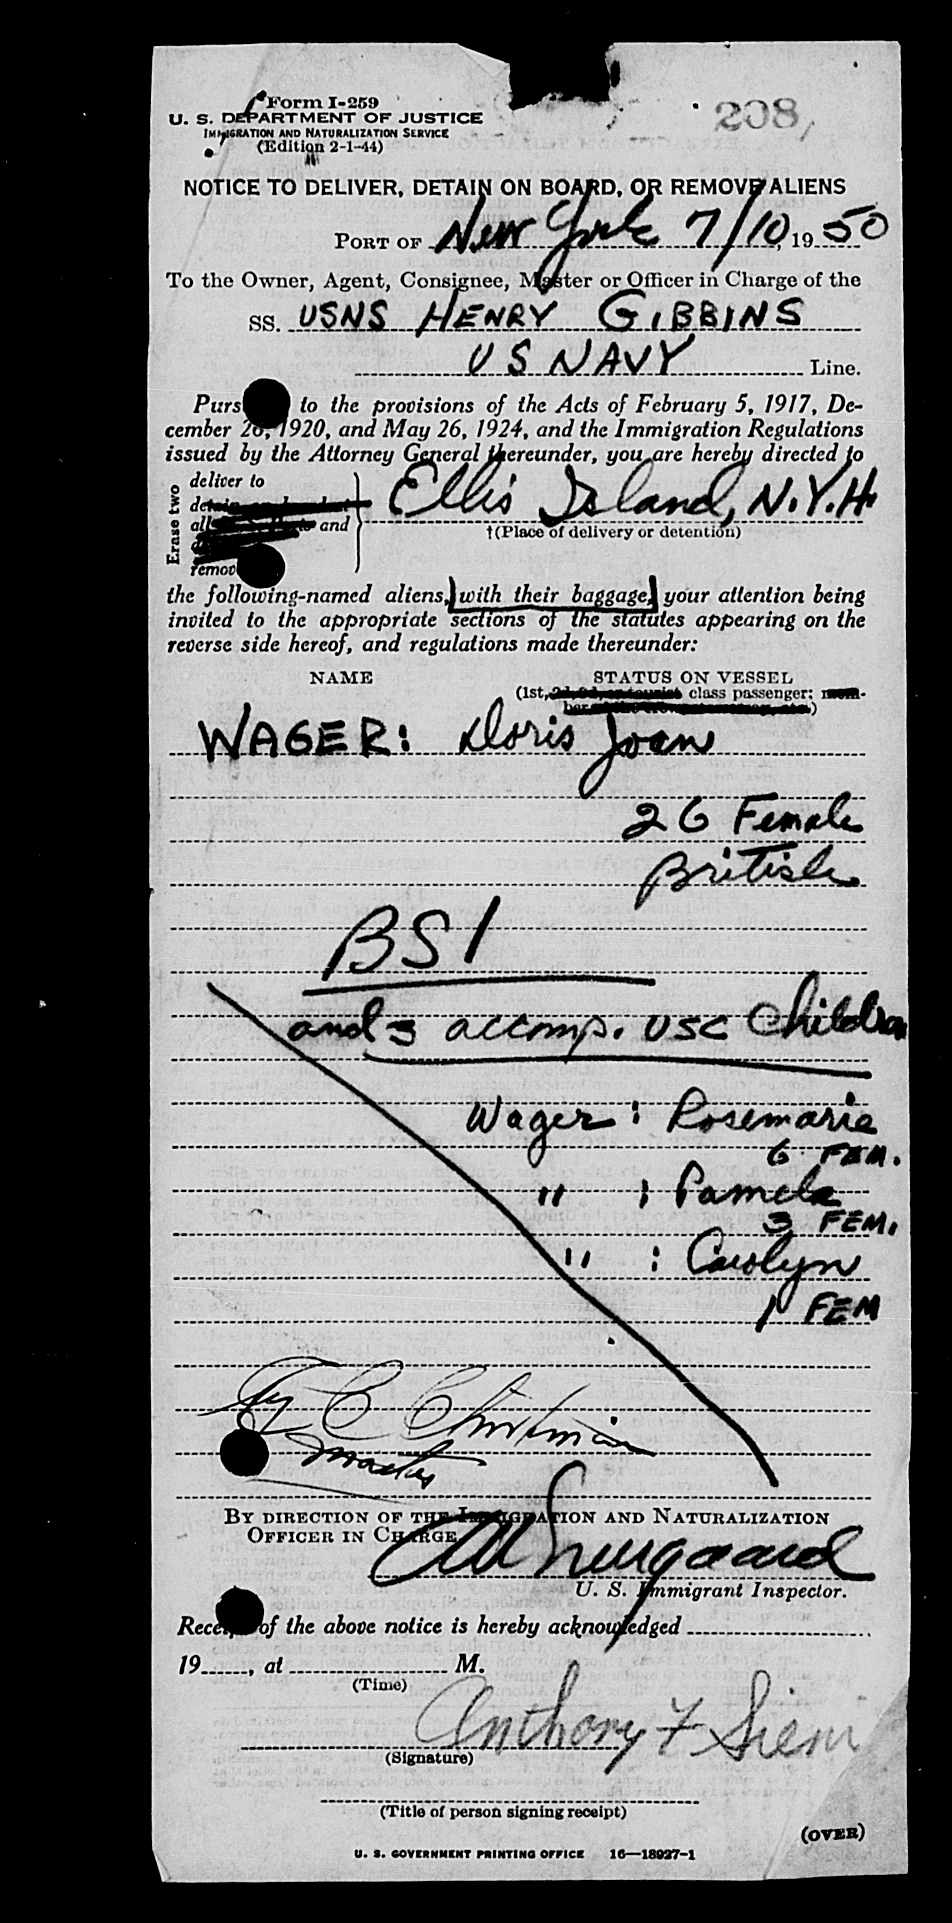 Form I-259
208
U. S. DEPARTMENT OF JUSTICE
IMMIGRATION AND NATURALIZATION SERVICE
(Edition 2-1-44)
NOTICE TO DELIVER, DETAIN ON BOARD, OR REMOVE ALIENS
PORT OF New York 7/10, 1950
To the Owner, Agent, Consignee, Master or Officer in Charge of the
SS. USNS HENRY GIBBINS
US NAVY Line.
Purs to the provisions of the Acts of February 5, 1917, De-
cember 26, 1920, and May 26, 1924, and the Immigration Regulations
issued by the Attorney General thereunder, you are hereby directed to
Erase two
deliver to
and
remov
Ellis Island, N.Y.H.
†(Place of delivery or detention)
the following-named aliens, with their baggage, your attention being
invited to the appropriate sections of the statutes appearing on the
reverse side hereof, and regulations made thereunder:
NAME STATUS ON VESSEL
(1st, class passenger; mem-
WAGER: Doris Joan
26 Female
British
BSI
and 3 accomp. USC Children
Wager: Rosemarie
6 FEM.
" : Pamela
3 FEM.
" : Carolyn
1 FEM
Master
BY DIRECTION OF THE IMMIGRATION AND NATURALIZATION
OFFICER IN CHARGE
U. S. Immigrant Inspector.
Receipt of the above notice is hereby acknowledged
19 , at M.
(Time)
Anthony F Siem
(Signature)
(Title of person signing receipt)
(OVER)
U. S. GOVERNMENT PRINTING OFFICE 16—18927-1